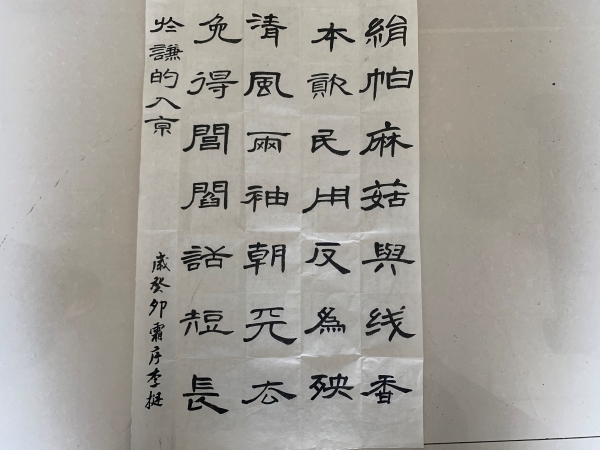 絹帕麻菇與线香
本民用反為殃
清風兩袖朝天去
免得閭閻話短長
於謙的入京
歲癸卯霜序李挺